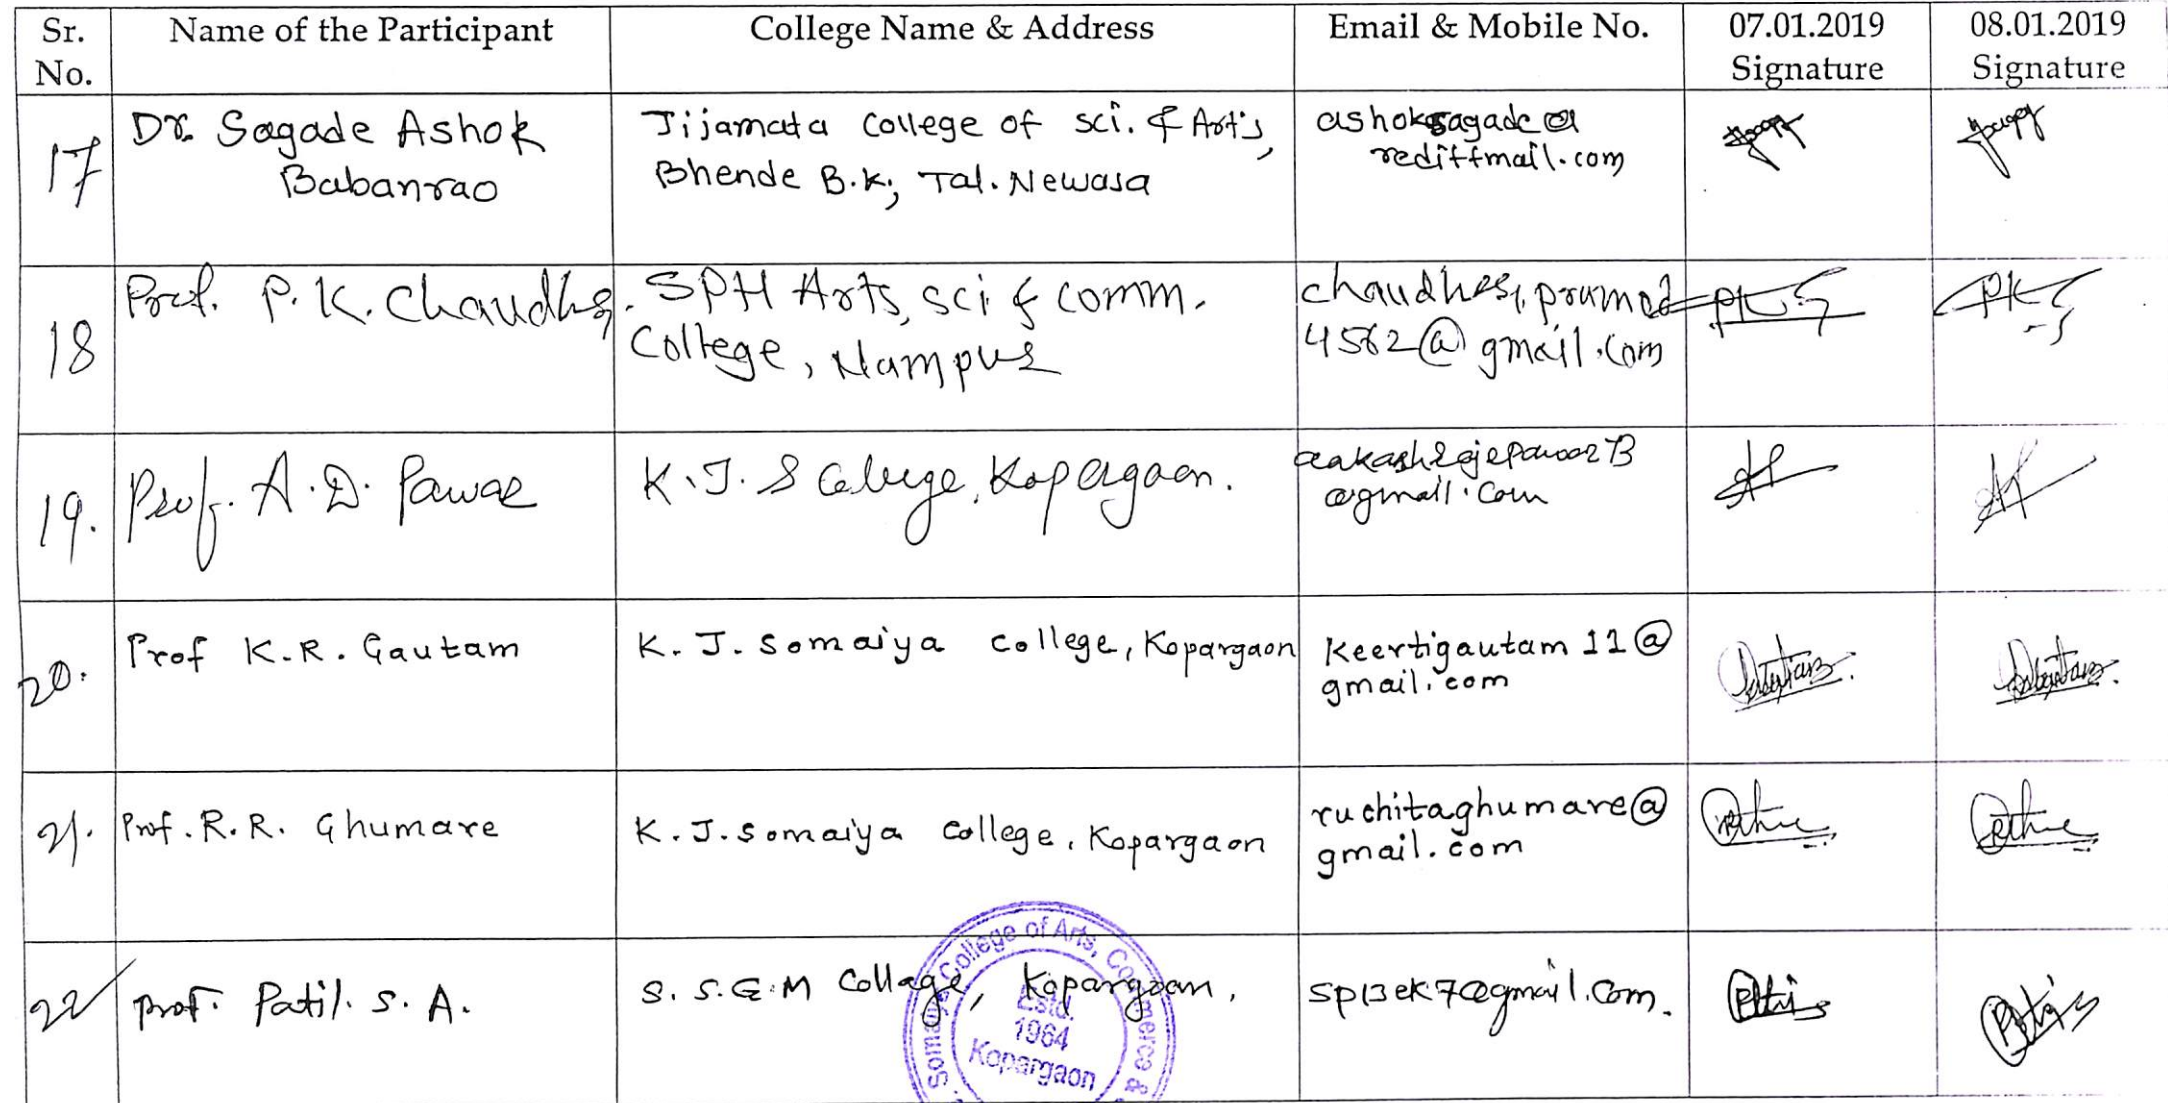 Sr. No.
Name of the Participant
College Name & Address
Email & Mobile No.
07.01.2019 Signature
08.01.2019 Signature
17
Dr. Sagade Ashok
Babanrao
Jijamata College of sci. & Art's,
Bhende B.K., Tal. Newasa
ashoksagade@
rediffmail.com
18
Prof. P. K. Chaudhari
SPH Arts, sci & comm.
College, Nampur
4562@gmail.com
19.
Prof. A. D. Pawar
K. J. S College, Kopargaon.
@gmail.com
20.
Prof K.R. Gautam
K. J. Somaiya College, Kopargaon
Keertigautam11@
gmail.com
21.
Prof. R.R. Ghumare
K. J. Somaiya College, Kopargaon
ruchitaghumare@
gmail.com
22
Prof. Patil. S. A.
S. S. G. M College, Kopargaon.
College of Arts, Commerce &
Estd.
1964
Kopargaon